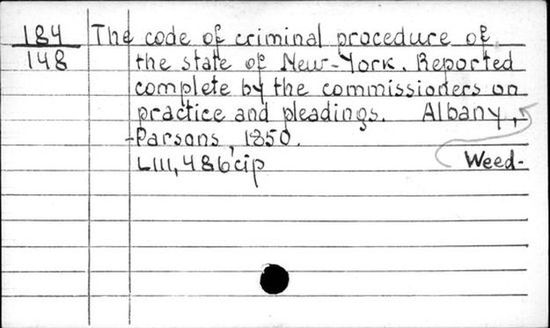 184 The code of criminal procedure of
148 the state of New-York. Reported
complete by the commissioners on
practice and pleadings. Albany,
Parsons, 1850. Weed-
LIII, 486 cip